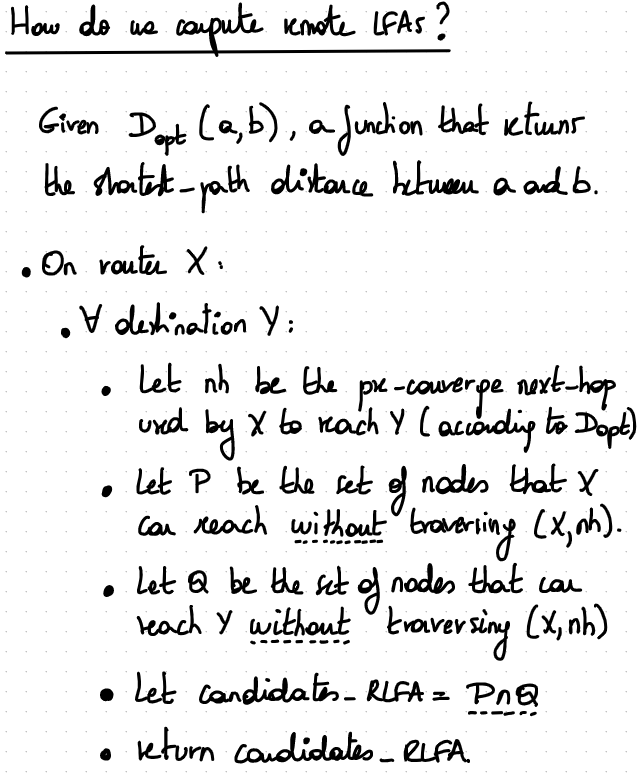 How do we compute remote LFAs?
Given D_opt (a,b), a function that returns
the shortest-path distance between a and b.
• On router X:
• ∀ destination Y:
• Let nh be the pre-converge next-hop
used by X to reach Y (according to D_opt)
• Let P be the set of nodes that X
can reach without traversing (X,nh).
• Let Q be the set of nodes that can
reach Y without traversing (X,nh)
• Let candidates_RLFA = P∩Q
• return candidates_RLFA.